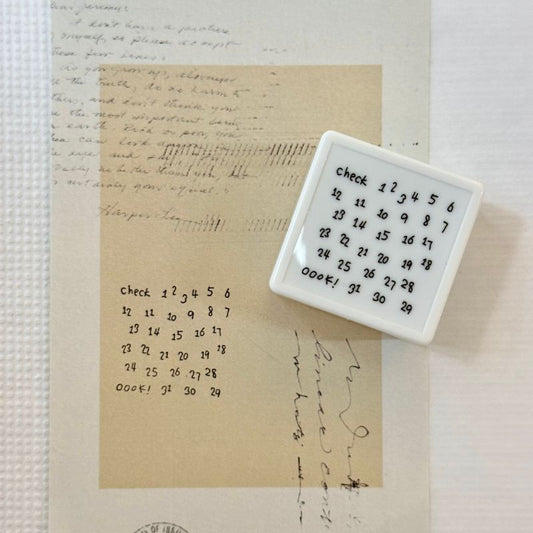 Dear Jeremy:
I don't have a picture
myself, so please accept
these few lines:
do you grow up, always
the truth, do no harm to
others, and don't think you
the most important being
earth. Rich or poor, you
can look anyone
eye and
better than you, but
certainly your equal.
Harper Lee
check 1 2 3 4 5 6
12 11 10 9 8 7
13 14 15 16 17
23 22 21 20 19 18
24 25 26 27 28
OOOK! 31 30 29
check 1 2 3 4 5 6
12 11 10 9 8 7
13 14 15 16 17
23 22 21 20 19 18
24 25 26 27 28
OOOK! 31 30 29